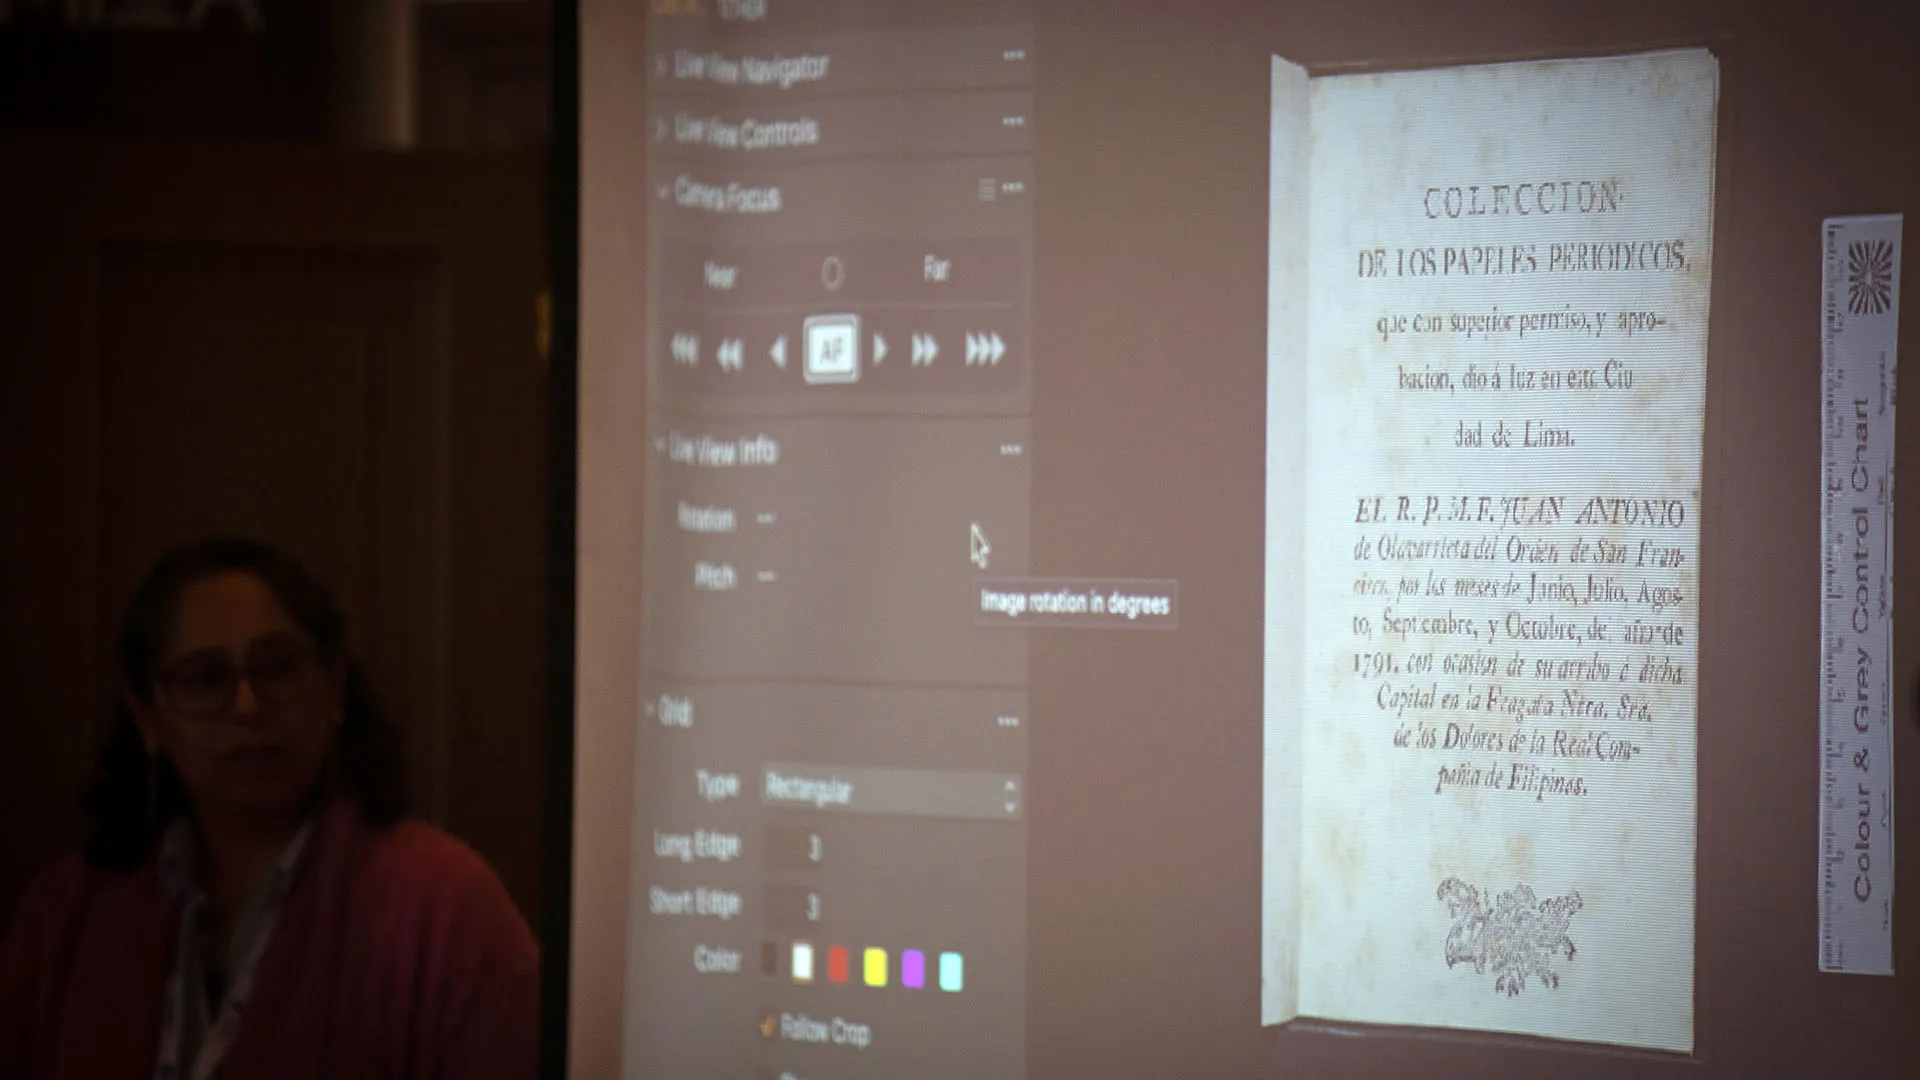 Live View Navigator
Live View Controls
Camera Focus
Near
Far
AF
Live View Info
Rotation --
Pitch --
Image rotation in degrees
Grid
Type Rectangular
Long Edge 3
Short Edge 3
Color
Follow Crop
COLECCION
DE LOS PAPELES PERIODICOS,
que con superior permiso, y apro-
bacion, dio á luz en este Ciu
dad de Lima.
EL R. P. M. F. JUAN ANTONIO
de Olavarrieta del Orden de San Fran-
cisco, por los meses de Junio, Julio, Agos-
to, Septiembre, y Octubre, de año de
1791. con ocasion de su arribo á dicha
Capital en la Fragata Ntra. Sra.
de los Dolores de la Real Com-
pañia de Filipinas.
Colour & Grey Control Chart